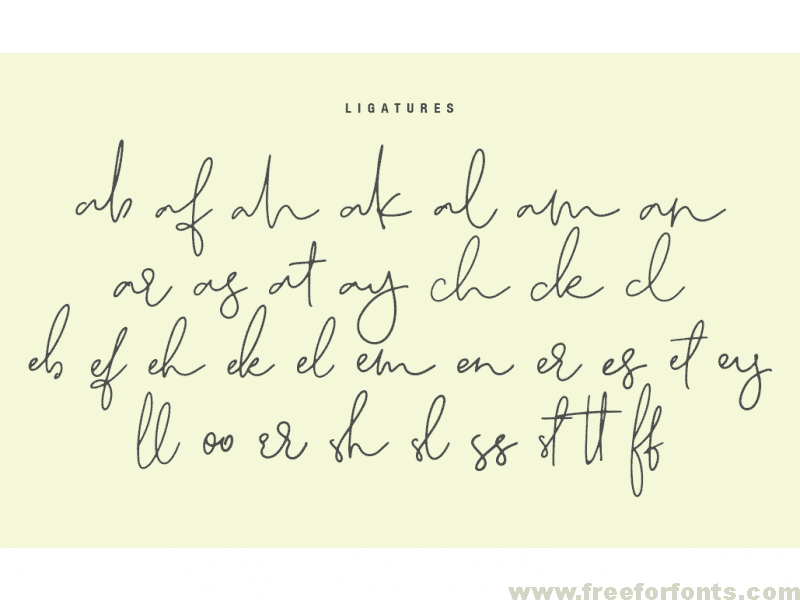 LIGATURES
ab af ah ak al am an
ar as at ay ch ck cl
eb ef eh ek el em en er es et ey
ll oo rr sh sl ss st tt ff
www.freeforfonts.com